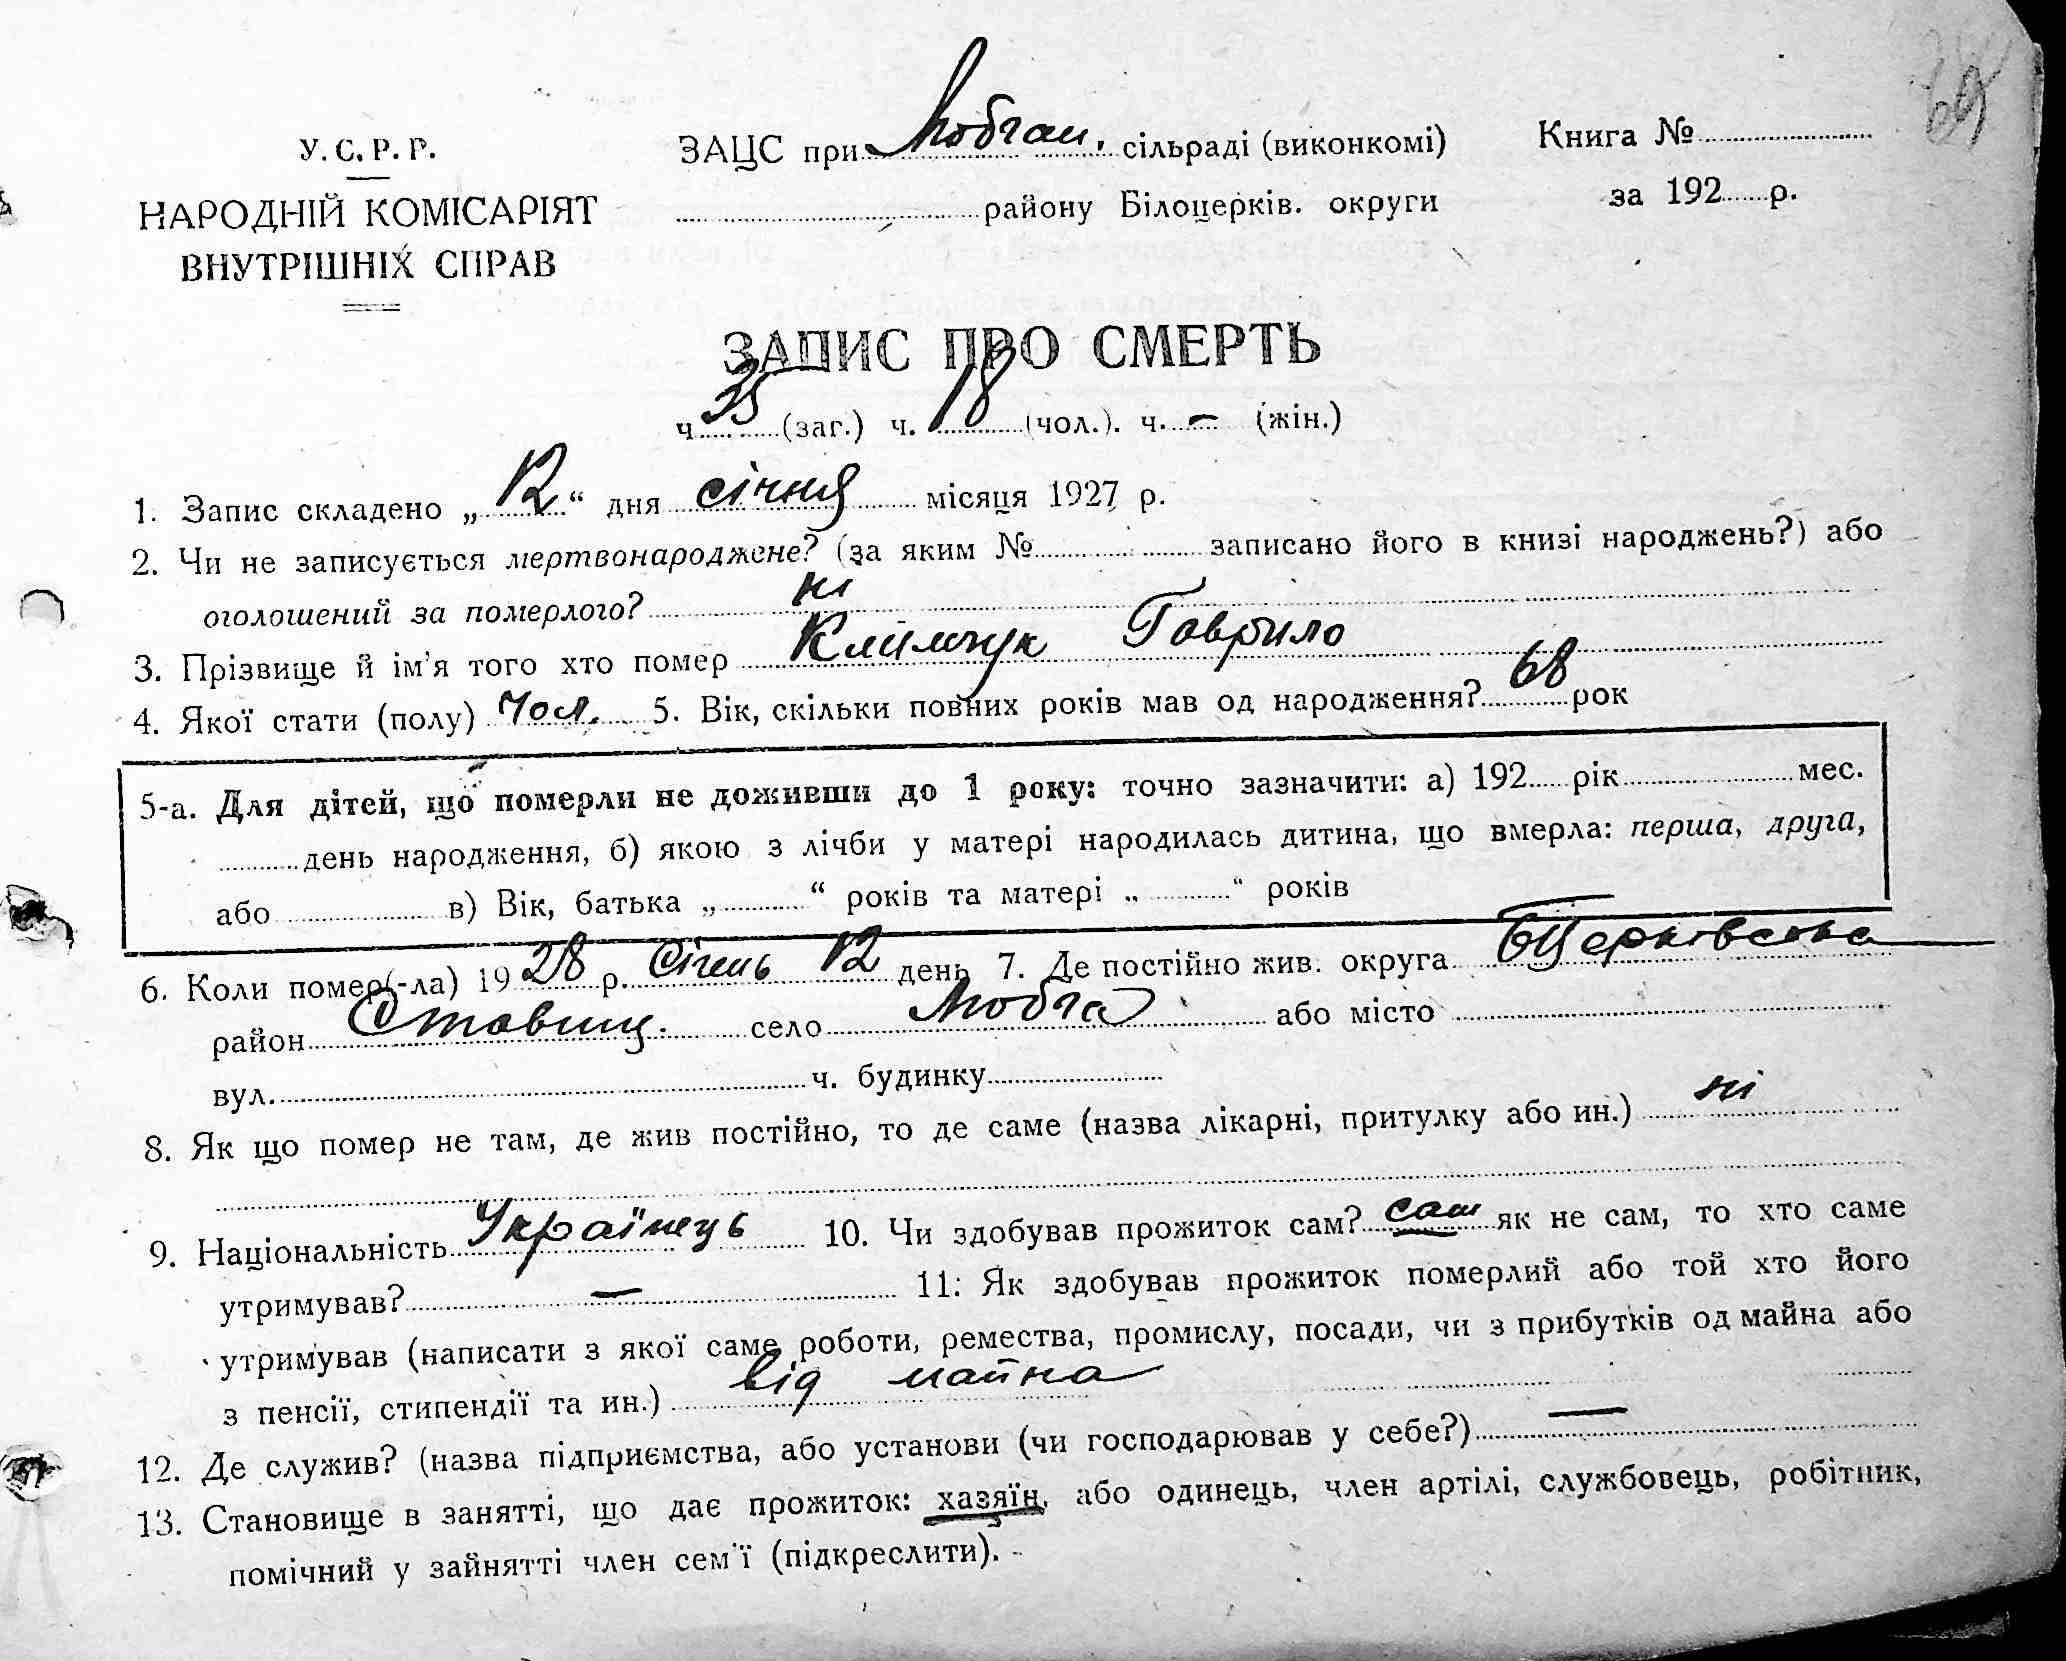 У. С. Р. Р.
НАРОДНІЙ КОМІСАРІЯТ
ВНУТРІШНІХ СПРАВ
ЗАЦС при Любчан. сільраді (виконкомі)
району Білоцерків. округи
Книга №
за 192 р.
ЗАПИС ПРО СМЕРТЬ
ч 35 (заг.) ч. 18 (чол.). ч. – (жін.)
1. Запис складено „ 12 “ дня січня місяця 1927 р.
2. Чи не записується мертвонароджене? (за яким № записано його в книзі народжень?) або
оголошений за померлого? ні
3. Прізвище й ім’я того хто помер Климчук Гаврило
4. Якої стати (полу) Чол. 5. Вік, скільки повних років мав од народження? 68 рок
5-а. Для дітей, що померли не доживши до 1 року: точно зазначити: а) 192 рік мес.
день народження, б) якою з лічби у матері народилась дитина, що вмерла: перша, друга,
або в) Вік, батька „ “ років та матері „ “ років
6. Коли помер(-ла) 1928 р. Січень 12 день 7. Де постійно жив. округа БЦерківська
район Ставищ. село Любча або місто
вул. ч. будинку
8. Як що помер не там, де жив постійно, то де саме (назва лікарні, притулку або ин.) ні
9. Національність Українець 10. Чи здобував прожиток сам? сам як не сам, то хто саме
утримував? — 11. Як здобував прожиток померлий або той хто його
утримував (написати з якої саме роботи, ремества, промислу, посади, чи з прибутків од майна або
з пенсії, стипендії та ин.) від майна
12. Де служив? (назва підприємства, або установи (чи господарював у себе?) —
13. Становище в занятті, що дає прожиток: хазяїн, або одинець, член артілі, службовець, робітник,
помічний у зайнятті член сем’ї (підкреслити).